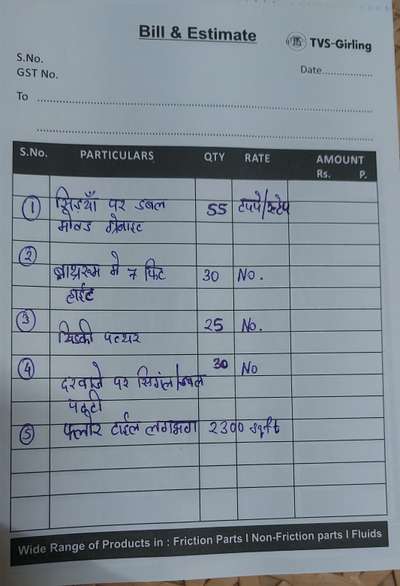 Bill & Estimate
TVS-Girling
S.No.
GST No.
Date
To
S.No. PARTICULARS QTY RATE AMOUNT
Rs. P.
① सिड़याँ पर डबल 55 टपपे/स्टेप
मोल्ड ग्रेनाइट
② बाथरूम मे 7 फिट 30 No.
हाईट
③ खिडकी पत्थर 25 No.
④ दरवाजे पर सिगंल/डबल 30 No
पट्टी
⑤ फ्लोर टाईल लगभग 2300 sqft
Wide Range of Products in : Friction Parts I Non-Friction parts I Fluids